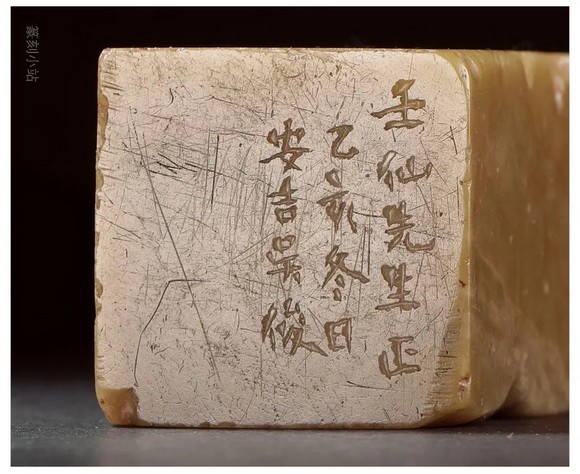 壬仙先生正
乙亥冬日
安吉吴俊
篆刻小站